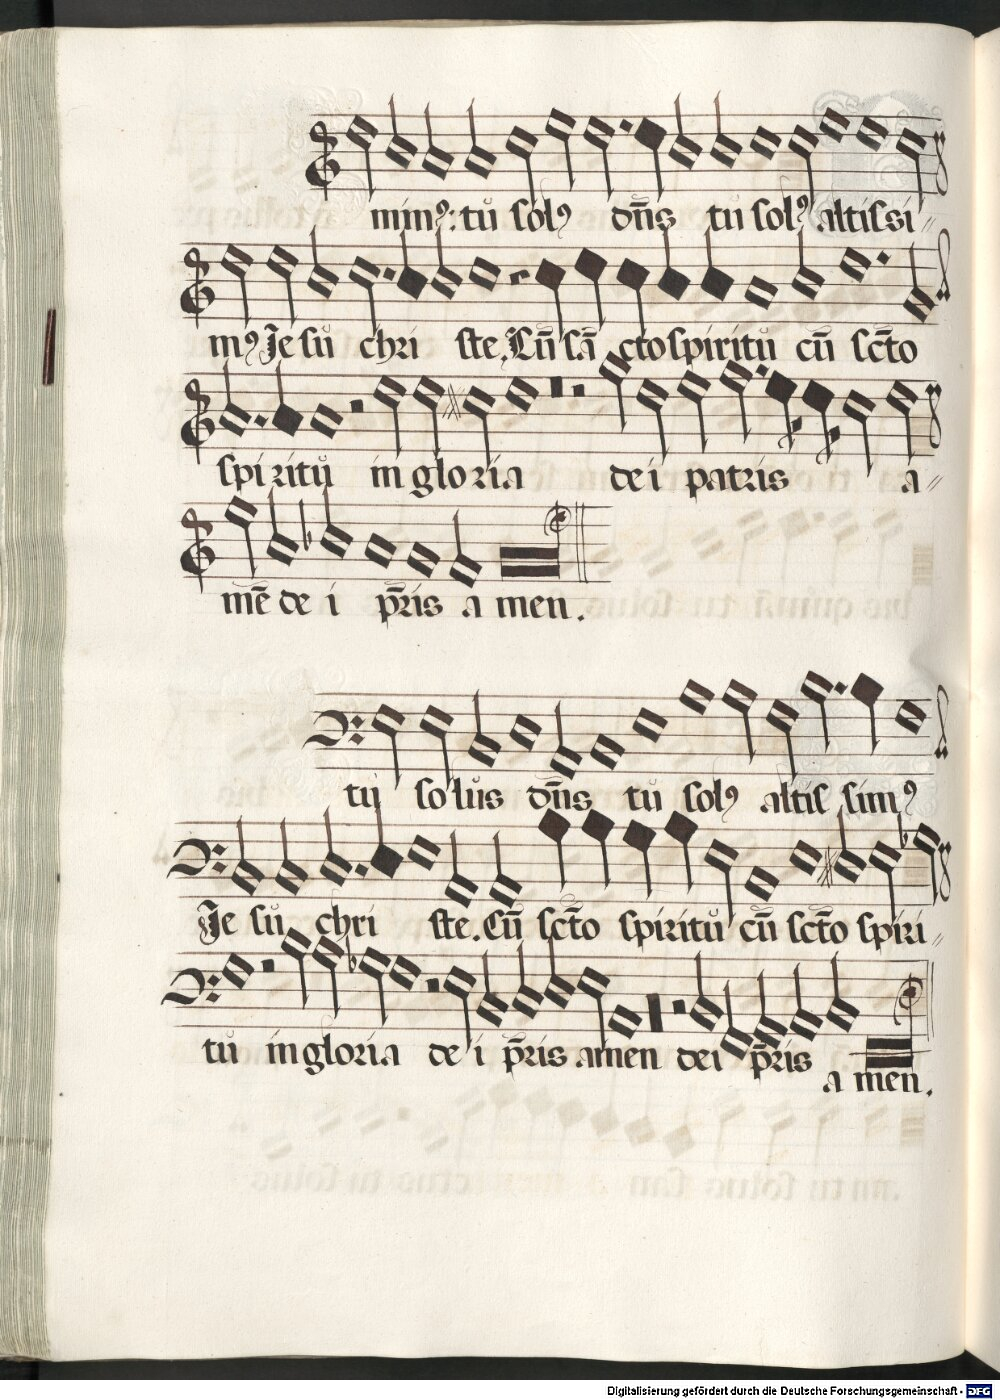 minꝰ: tū solꝰ dn̄s tu solꝰ altissi〃
mꝰ Jesu chri ste. Cūsā ctospiritū cū scto
spiritū in gloria dei patris a〃
mē de i pr̄is a men.
tu solus dn̄s tu solꝰ altissimꝰ
Jesu chri ste. cū scto spiritu cū scto spiri〃
tu in gloria de i pr̄is amen dei pr̄is
a men.
Digitalisierung gefördert durch die Deutsche Forschungsgemeinschaft - DFG